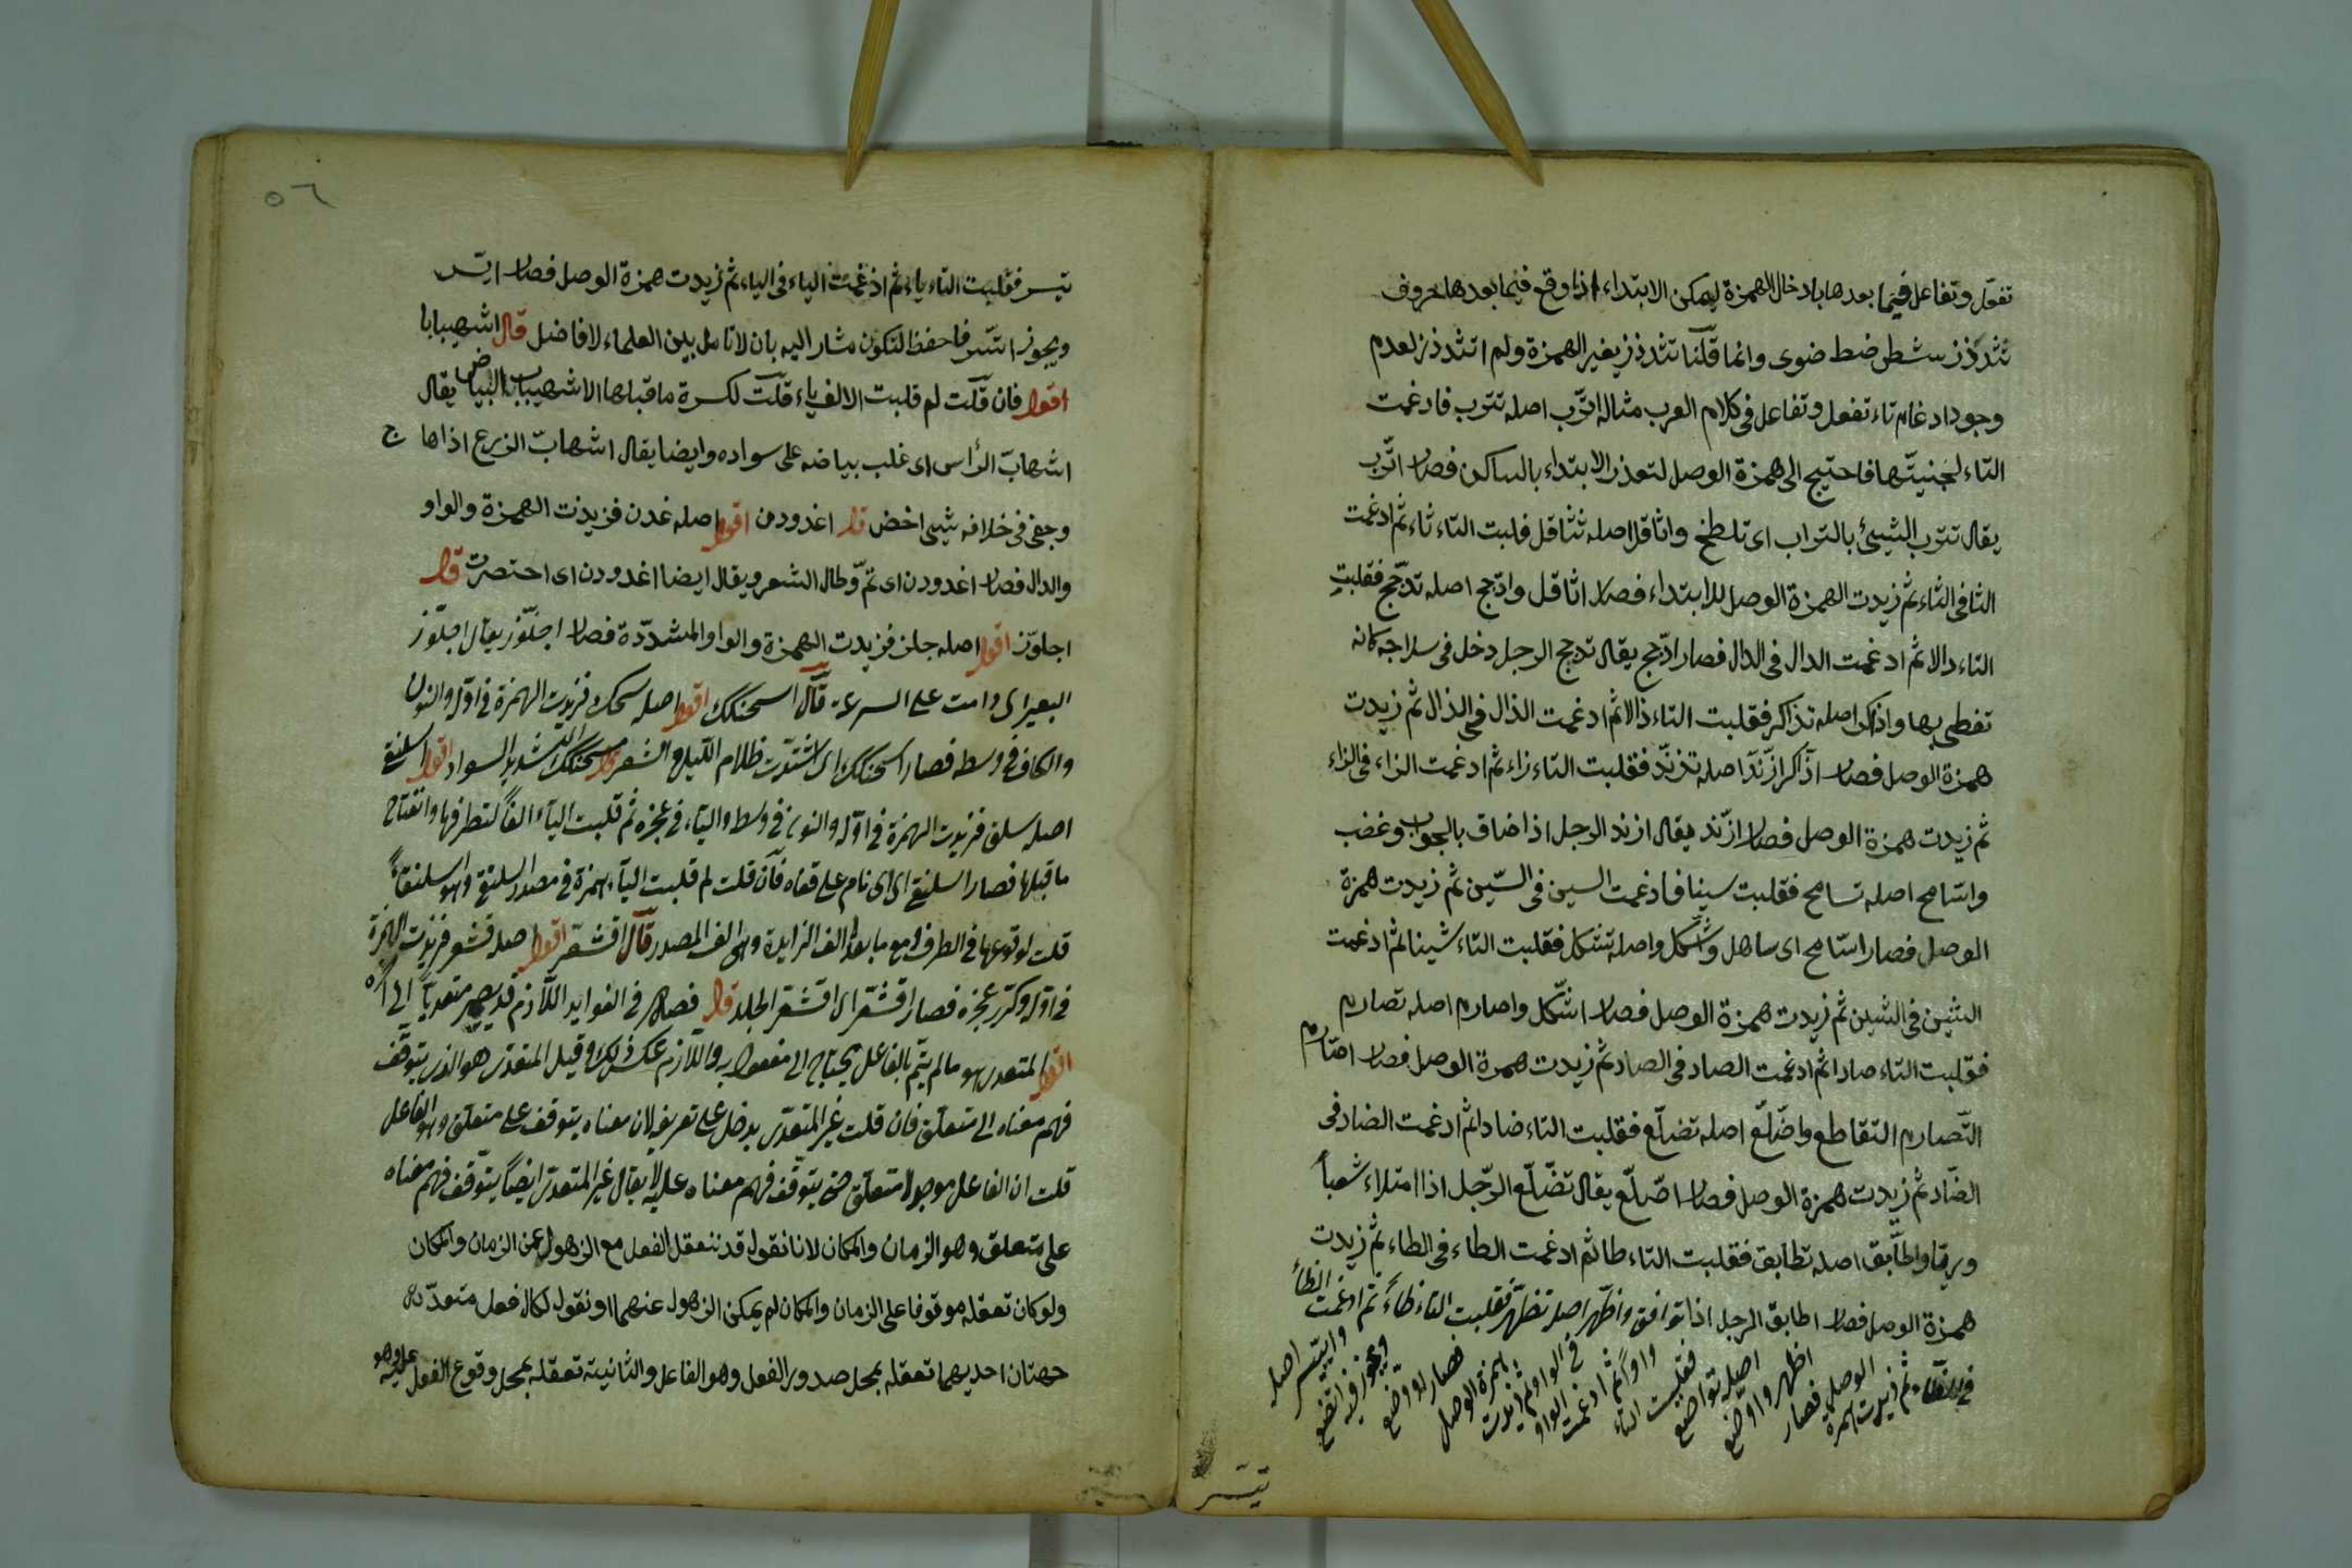 تفعّل وتفاعل فيما بعدها بادخال الهمزة ليمكن الابتداء اذا وقع فيما بعدها حروف
تثدذز سشط ضط ضوى وانما قلنا تثدذز بغير الهمزة ولم اتثدذز لعدم
وجود ادغام تاء تفعل وتفاعل فى كلام العرب مثاله اتّرب اصله تترب فادغمت
التاء لجنيتّها فاحتيج الى همزة الوصل لتعذر الابتداء بالساكن فصار اتّرب
يقال تترب الشيئ بالتراب اى تلطخ واثاقل اصله تثاقل فلبت التاء ثاء ثم ادغمت
الثا فى الثاء ثم زيدت الهمزة الوصل للابتداء فصار اثاقل وادّجج اصله تدجّج فقلبت
التاء دالا ثم ادغمت الدال فى الدال فصار ادّجج يقال تدجج الرجل دخل فى سلاجه كانه
تغطى بها واذاكر اصله تذاكر فقلبت التاء ذالا ثم ادغمت الذال فى الذال ثم زيدت
همزة الوصل فصار اذّاكر ازّنّد اصله تزنّد فقلبت التاء زاء ثم ادغمت الزاء فى الزاء
ثم زيدت همزة الوصل فصار ازّند يقال ازند الرجل اذا ضاق بالجواب وغضب
واسّامح اصله تسامح فقلبت سينا فادغمت السين فى السّين ثم زيدت همزة
الوصل فصار اسّامح اى ساهل واشّكل واصله تشكل فقلبت التاء شينا ثم ادغمت
الشين فى الشين ثم زيدت همزة الوصل فصار اشّكل واصارم اصله تصارم
فقلبت التاء صادا ثم ادغمت الصاد فى الصاد ثم زيدت همزة الوصل فصار اصّارم
التّصارم التقاطع واضّلّع اصله تضلّع فقلبت التاء ضادا ثم ادغمت الضاد فى
الضّاد ثم زيدت همزة الوصل فصار اضّلّع يقال تضّلّع الرّجل اذا امتلاء شعباً
ورقا واطّابق اصله تطابق فقلبت التاء طا ثم ادغمت الطاء فى الطاء ثم زيدت
همزة الوصل فصار اطابق الرجل اذا توافق واظّهر اصله تظهّر فقلبت التاء ظاءً ثم ادغمت الظاء
فى الظاء ثم زيدت همزة الوصل فصار اظهر واوضع اصله تواضع فقلبت التاء واواً ثم ادغمت الواو فى الواو ثم زيدت همزة الوصل فصار اووضع ويجوز فيه اتضع وايّسر اصله
تيسر
٥٦
تيسر فقلبت التاء ياء ثم ادغمت الياء فى الياء ثم زيدت همزة الوصل فصار ايّسر
ويجوز اتّسر فاحفظ لتكون مشار اليه بان لانامل بين العلماء لافاضل قال اشهيبابا
اقول فان قلت لم قلبت الالف ياء قلت لكسرة ماقبلها الاشهيباب البياض يقال
اشهابّ الرأس اى غلب بياضه على سواده وايضا يقال اشهابّ الزرع اذا ها ج
وجفى فى خلافه شيئ اخضر قال اغدودن اقول اصله غدن فزيدت الهمزة والواو
والدال فصار اغدودن اى تمّ وطال الشعر ويقال ايضا اغدودن اى احتصرت قال
اجلوّز اقول اصله جلز فزيدت الهمزة والواو المشدّدة فصار اجلوّز يقال اجلوّز
البعير اى دامت على السرعة قال اسحنكك اقول اصله سحك فزيدت الهمزة فى اوّله والنون
والكاف فى وسطه فصار اسحنكك اى اشتدّت ظلام الليل والشعر مسحنكك الشديد السواد اقول اسلنقى
اصله سلق فزيدت الهمزة فى اوّله والنون فى وسط والياء فى عجزه ثم قلبت الياء الفاً لتطرفها وانفتاح
ماقبلها فصار اسلنقى اى نام على قفاه فان قلت لم قلبت الياء همزة فى مصدر اسلنقى وهو اسلنقاءً
قلت لوقوعها فى الطرف مع مابعد الف الزايدة وهى الف المصدر قال اقشعرّ اقول اصله قشعر فزيدت الهمزة
فى اوّله وكرّر عجزه فصار اقشعرّ اى اقشعر الجلد قال فصل فى الفوايد اللّازم قد يصير متعدياً الى اخره
اقول المتعدى هو مالم يتمّ بالفاعل يحتاج الى مفعول به واللّازم عكس ذلك وقيل المتعدى هو الذى يتوقّف
فهم معناه الى متعلق فان قلت غير المتعدّى يدخل على تعريفه لان معناه يتوقف على متعلق وهو الفاعل
قلت ان الفاعل موجود لا متعلق حتى يتوقّف فهم معناه عليه لايقال غير المتعدى ايضاً يتوّقف فهم معناه
على متعلق وهو الزمان والمكان لانا نقول قد نتعقل الفعل مع الزهول عن الزمان والمكان
ولو كان تعقله موقوفا على الزمان والمكان لم يمكن الزهول عنهما او نقول لكل فعل متعدّ له
جهتان احديهما تعقله بمحل صدور الفعل وهو الفاعل والثانية تعقله بمحل وقوع الفعل عليه وهو